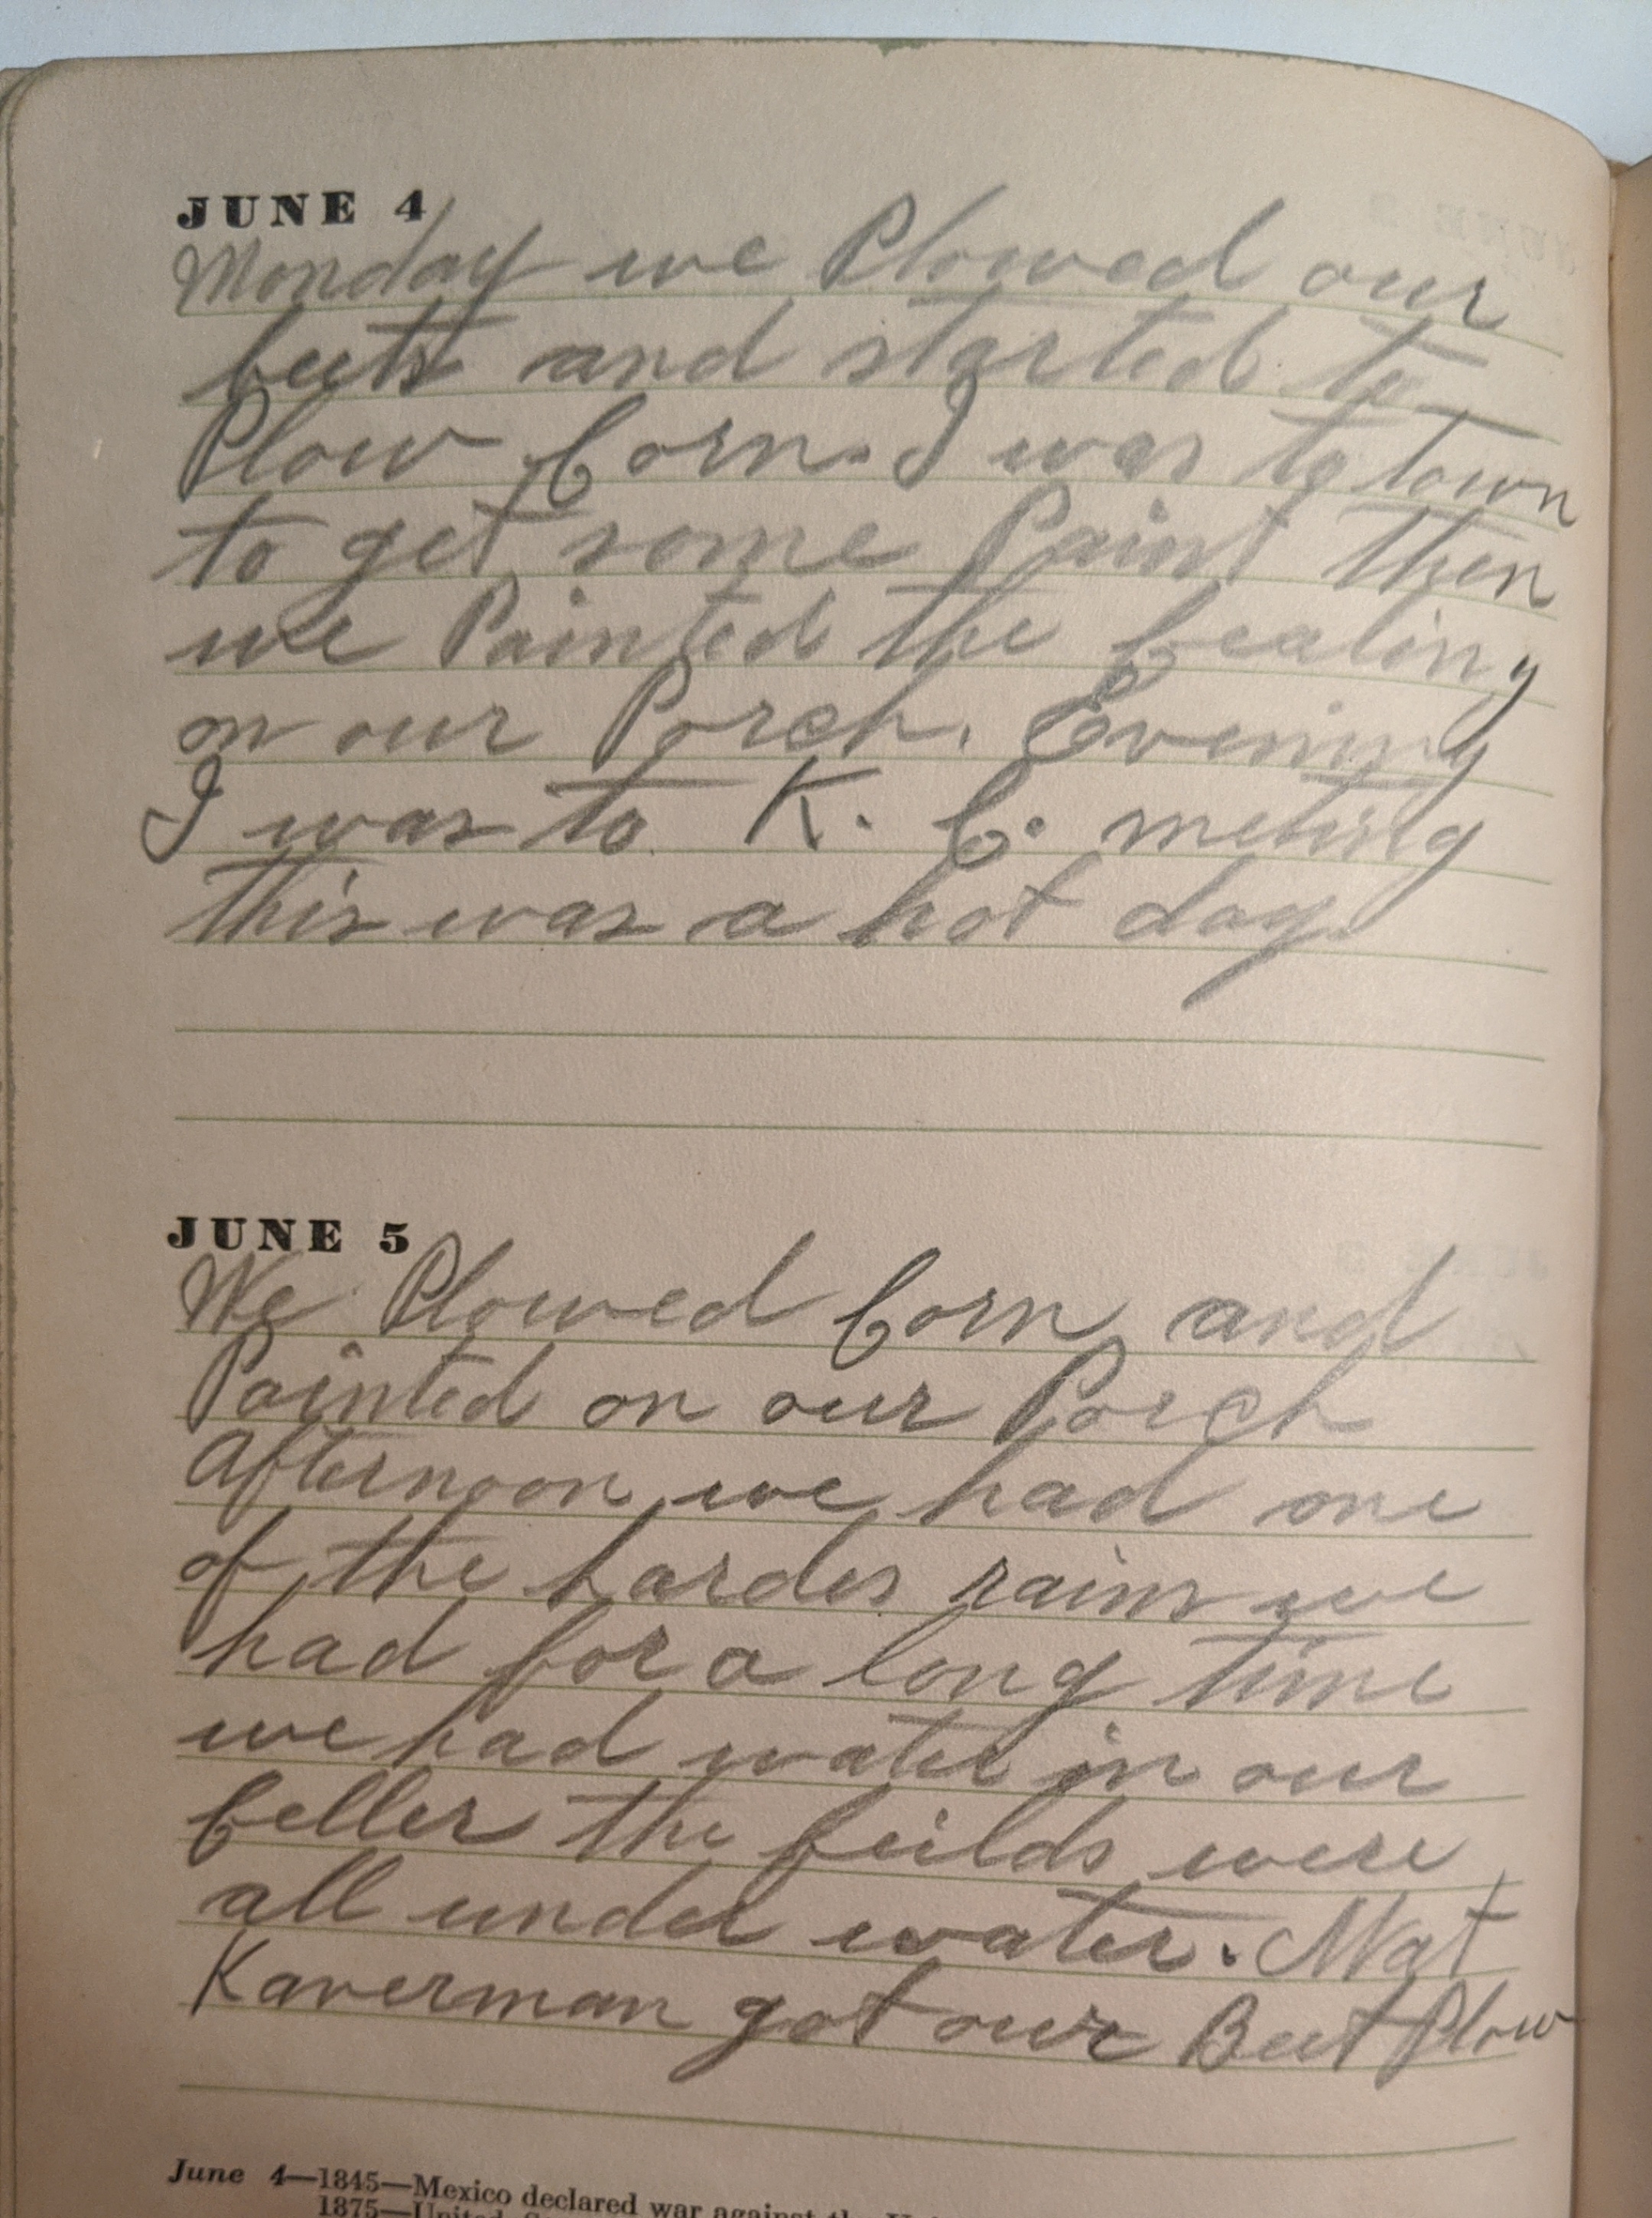 JUNE 4
Monday we Plowed our
beets and started to
Plow Corn. I was to town
to get some Paint then
we Painted the Cealing
on our Porch. Evening
I was to K. C. meting
this was a hot day.
JUNE 5
We Plowed Corn and
Painted on our Porch
Afternoon we had one
of the hardes rains we
had for a long time
we had water in our
Celler the feilds were
all under water. Nat
Kaverman got our Beet Plow
June 4—1845—Mexico declared war against the
1875—United